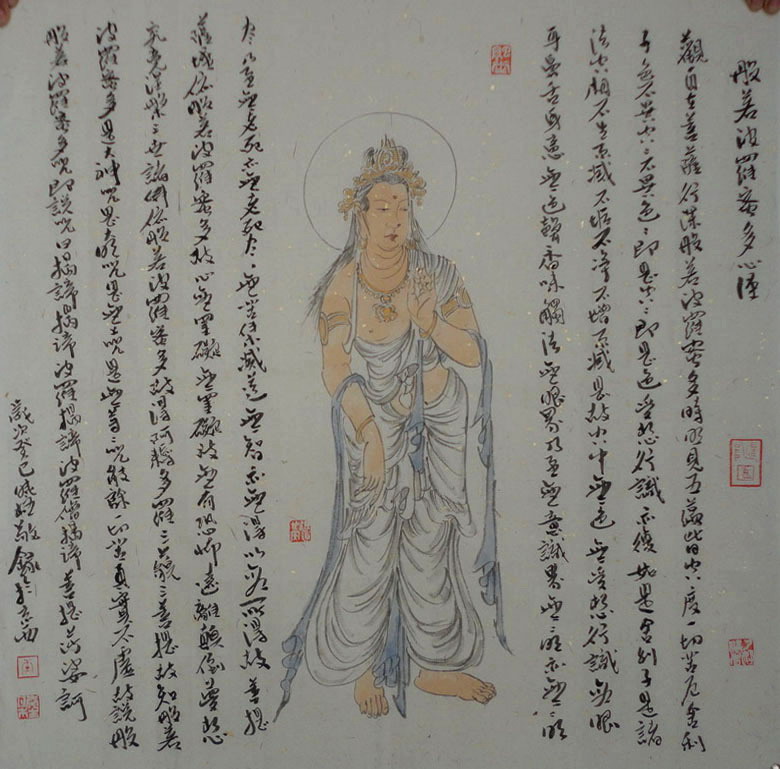 般若波羅蜜多心經
觀自在菩薩行深般若波羅蜜多時照見五蘊皆空度一切苦厄舍利
子色不異空々不異色々即是空々即是色受想行識亦復如是舍利子是諸
法空相不生不滅不垢不淨不增不減是故空中無色無受想行識無眼
耳鼻舌身意無色聲香味觸法無眼界乃至無意識界無々明亦無々明
盡乃至無老死亦無老死盡々無苦集滅道無智亦無得以無所得故菩提
薩埵依般若波羅蜜多故心無罣礙無罣礙故無有恐怖遠離顛倒夢想
究竟涅槃三世諸佛依般若波羅蜜多故得阿耨多羅三藐三菩提故知般若
波羅蜜多是大神咒是大明咒是無上咒是無等々咒能除一切苦真實不虛故說般
般若波羅蜜多咒即說咒曰揭諦揭諦波羅揭諦波羅僧揭諦菩提薩婆訶
歲次癸巳敬錄於京西